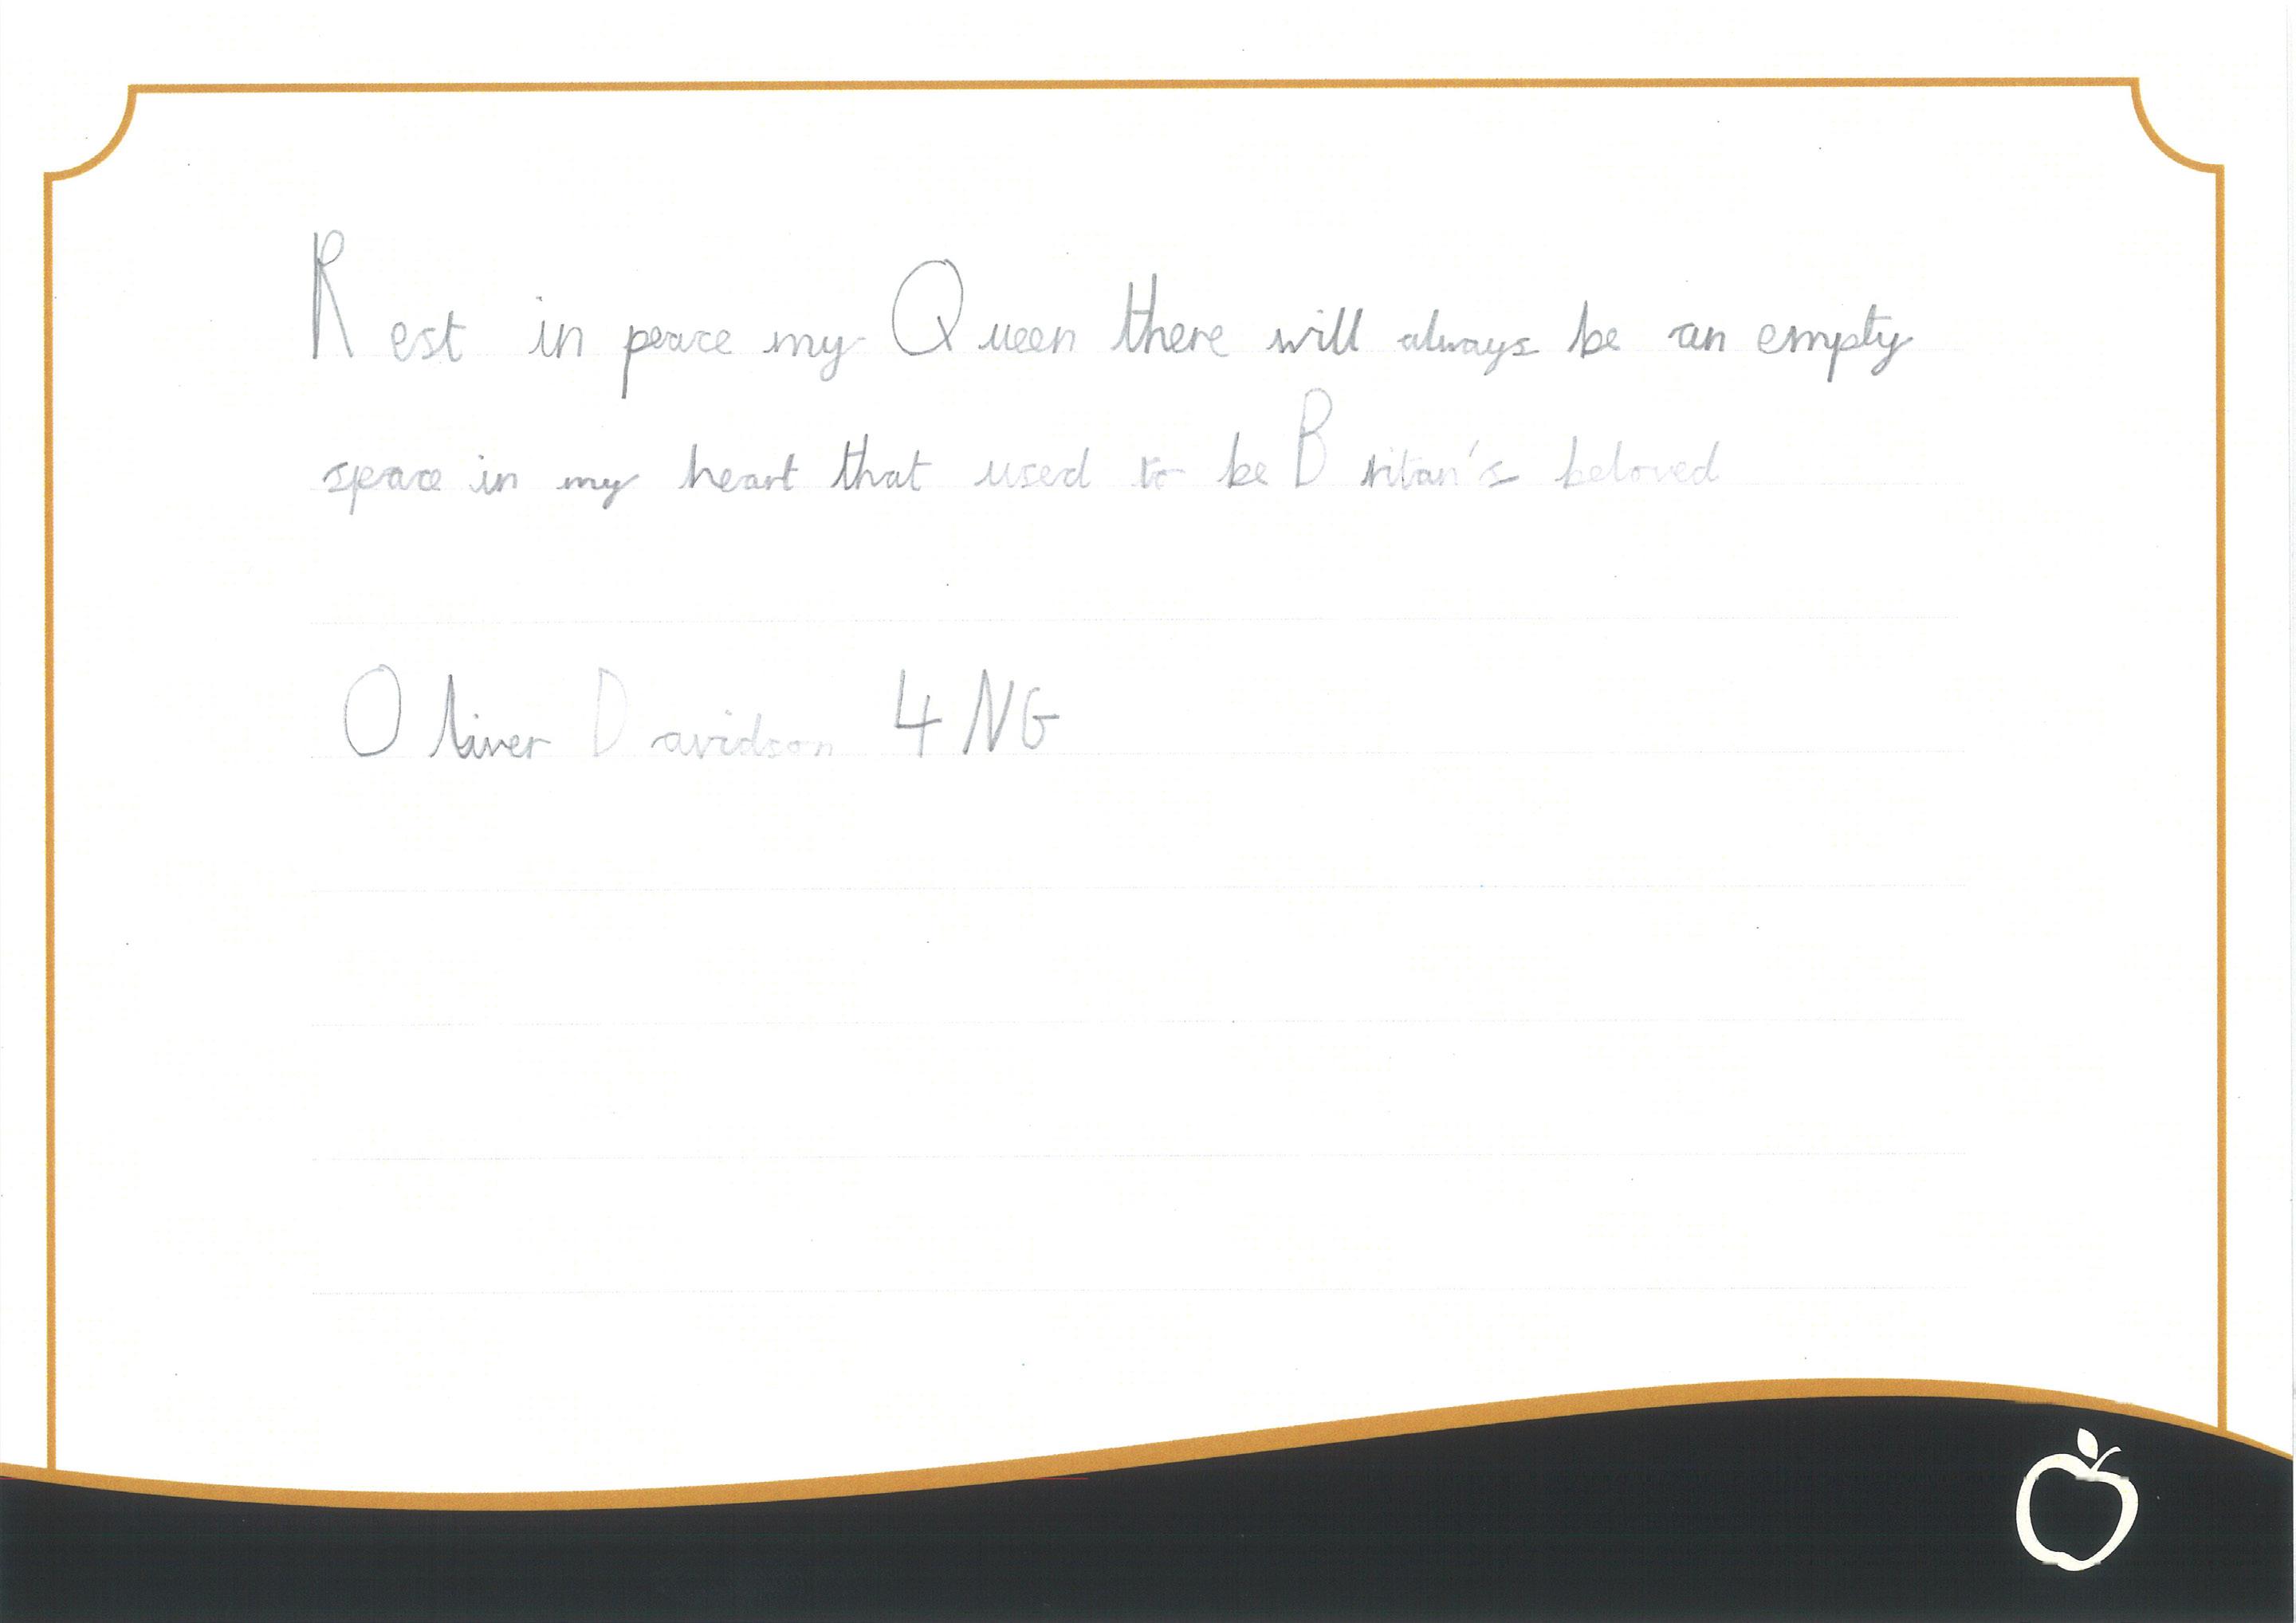 Rest in peace my Queen there will always be an empty
space in my heart that used to be Britan's beloved
Oliver Davidson 4NG